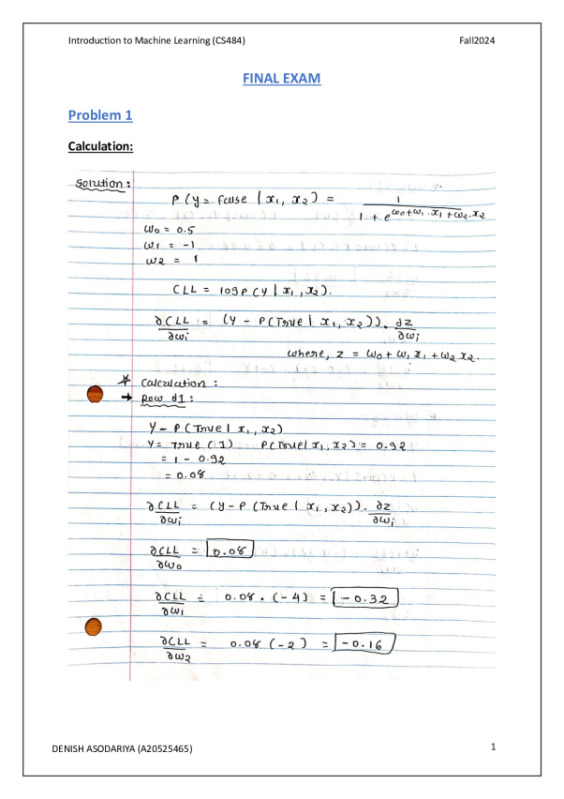 Introduction to Machine Learning (CS484) Fall2024
FINAL EXAM
Problem 1
Calculation:
Solution:
P(y = false | x₁, x₂) = 1 / 1 + e^(w₀+w₁.x₁+w₂.x₂)
w₀ = 0.5
w₁ = -1
w₂ = 1
CLL = log P(y | x₁, x₂).
∂CLL/∂wᵢ = (y - P(True | x₁, x₂)). ∂z/∂wᵢ
where, z = w₀ + w₁x₁ + w₂x₂.
* Calculation :
→ Row #1:
y - P(True | x₁, x₂)
y = True (1) P(True | x₁, x₂) = 0.92
= 1 - 0.92
= 0.08
∂CLL/∂wᵢ = (y - P(True | x₁, x₂)). ∂z/∂wᵢ
∂CLL/∂w₀ = 0.08
∂CLL/∂w₁ = 0.08 . (-4) = -0.32
∂CLL/∂w₂ = 0.08 (-2) = -0.16
DENISH ASODARIYA (A20525465) 1